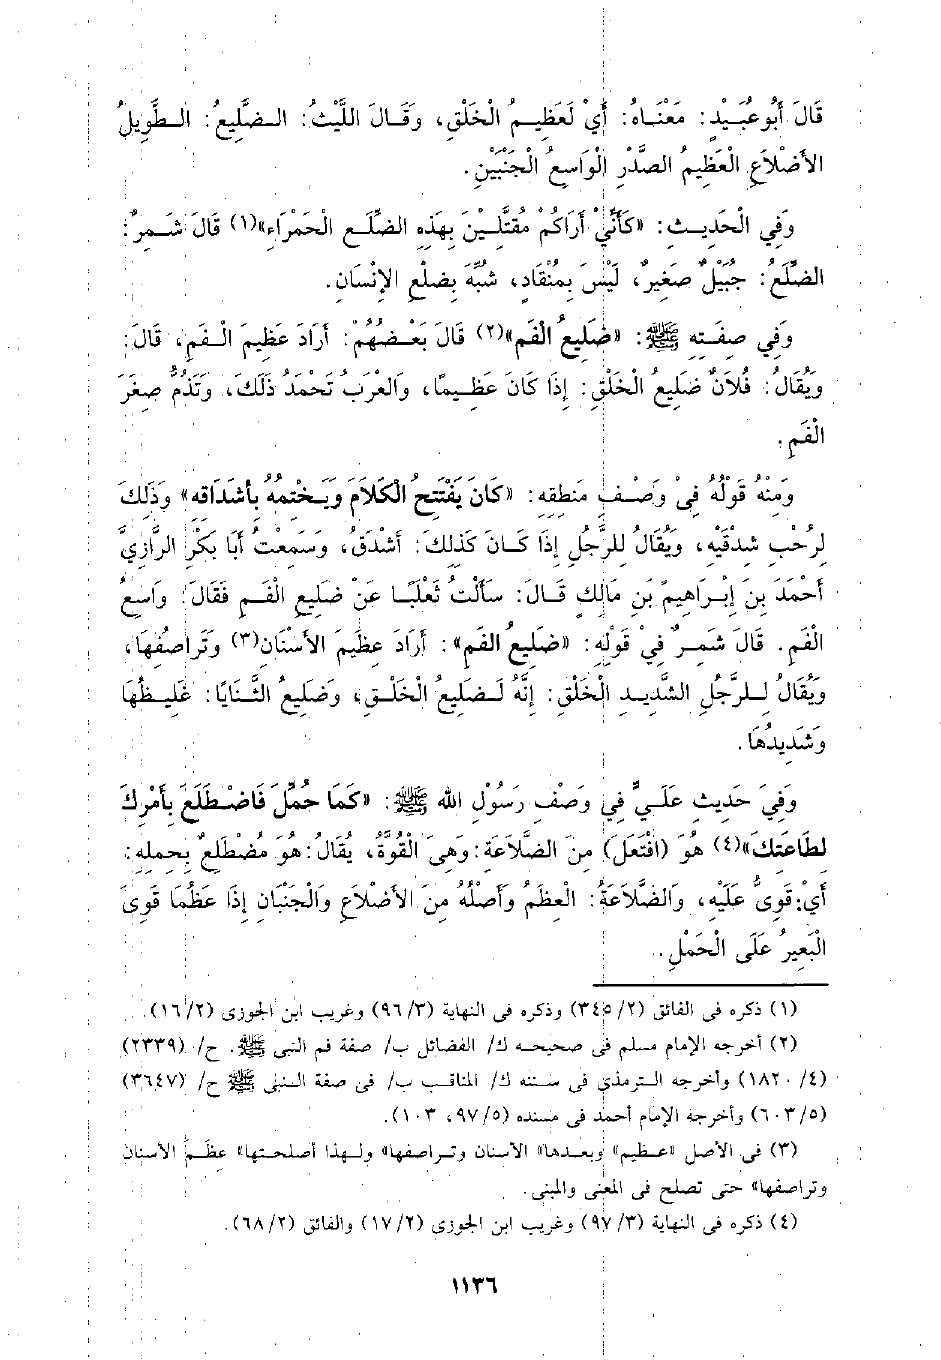 قَالَ أَبُو عُبَيْدٍ: مَعْنَاهُ: أَيْ لَعَظِيمُ الْخَلْقِ، وَقَالَ اللَّيْثُ: الضَّلِيعُ: الطَّوِيلُ
الأَضْلاَعِ الْعَظِيمُ الصَّدْرِ الْوَاسِعُ الْجَنْبَيْنِ.
وَفِي الْحَدِيثِ: «كَأَنِّيْ أَرَاكُمْ مُقَتَّلِينَ بِهَذِهِ الضِّلَعِ الْحَمْرَاءِ»(١) قَالَ شَمِرٌ:
الضِّلَعُ: جُبَيْلٌ صَغِيرٌ، لَيْسَ بِمُنْقَادٍ، شُبِّهَ بِضِلْعِ الإِنْسَانِ.
وَفِي صِفَتِهِ ﷺ: «ضَلِيعُ الْفَمِ»(٢) قَالَ بَعْضُهُمْ: أَرَادَ عَظِيمَ الْفَمِ، قَالَ:
وَيُقَالُ: فُلاَنٌ ضَلِيعُ الْخَلْقِ: إِذَا كَانَ عَظِيمًا، وَالْعَرَبُ تَحْمَدُ ذَلِكَ، وَتَذُمُّ صِغَرَ
الْفَمِ.
وَمِنْهُ قَوْلُهُ فِيْ وَصْفِ مَنْطِقِهِ: «كَانَ يَفْتَتِحُ الْكَلاَمَ وَيَخْتِمُهُ بِأَشْدَاقِهِ» وَذَلِكَ
لِرُحْبِ شِدْقَيْهِ، وَيُقَالُ لِلرَّجُلِ إِذَا كَانَ كَذَلِكَ: أَشْدَقُ، وَسَمِعْتُ أَبَا بَكْرٍ الرَّازِيَّ
أَحْمَدَ بنَ إِبْرَاهِيمَ بنِ مَالِكٍ قَالَ: سَأَلْتُ ثَعْلَبًا عَنْ ضَلِيعِ الْفَمِ فَقَالَ: وَاسِعُ
الْفَمِ. قَالَ شَمِرٌ فِيْ قَوْلِهِ: «ضَلِيعُ الفَمِ»: أَرَادَ عَظِيمَ الأَسْنَانِ(٣) وَتَرَاصُفَهَا،
وَيُقَالُ لِلرَّجُلِ الشَّدِيدِ الْخَلْقِ: إِنَّهُ لَضَلِيعُ الْخَلْقِ، وَضَلِيعُ الثَّنَايَا: غَلِيظُهَا
وَشَدِيدُهَا.
وَفِي حَدِيثِ عَلِيٍّ فِي وَصْفِ رَسُوْلِ اللهِ ﷺ: «كَمَا حُمِّلَ فَاضْطَلَعَ بِأَمْرِكَ
لِطَاعَتِكَ»(٤) هُوَ (افْتَعَلَ) مِنَ الضَّلاَعَةِ: وَهِيَ الْقُوَّةُ، يُقَالُ: هُوَ مُضْطَلِعٌ بِحِمْلِهِ:
أَيْ: قَوِيٌّ عَلَيْهِ، وَالضَّلاَعَةُ: الْعِظَمُ وَأَصْلُهُ مِنَ الأَضْلاَعِ وَالْجَنْبَانِ إِذَا عَظُمَا قَوِيَ
الْبَعِيرُ عَلَى الْحَمْلِ.
(١) ذكره فى الفائق (٣٤٥/٢) وذكره فى النهاية (٩٦/٣) وغريب ابن الجوزى (١٦/٢).
(٢) أخرجه الإمام مسلم فى صحيحه ك/ الفضائل ب/ صفة فم النبى ﷺ. ح/ (٢٣٣٩)
(١٨٢٠/٤) وأخرجه الترمذي فى سننه ك/ المناقب ب/ فى صفة النبى ﷺ ح/ (٣٦٤٧)
(٦٠٣/٥) وأخرجه الإمام أحمد فى مسنده (٩٧/٥، ١٠٣).
(٣) فى الأصل «عظيم» وبعدها» الأسنان وتراصفها» ولهذا أصلحتها» عظم الأسنان
وتراصفها» حتى تصلح فى المعنى والمبنى.
(٤) ذكره فى النهاية (٩٧/٣) وغريب ابن الجوزى (١٧/٢) والفائق (٦٨/٢).
١١٣٦